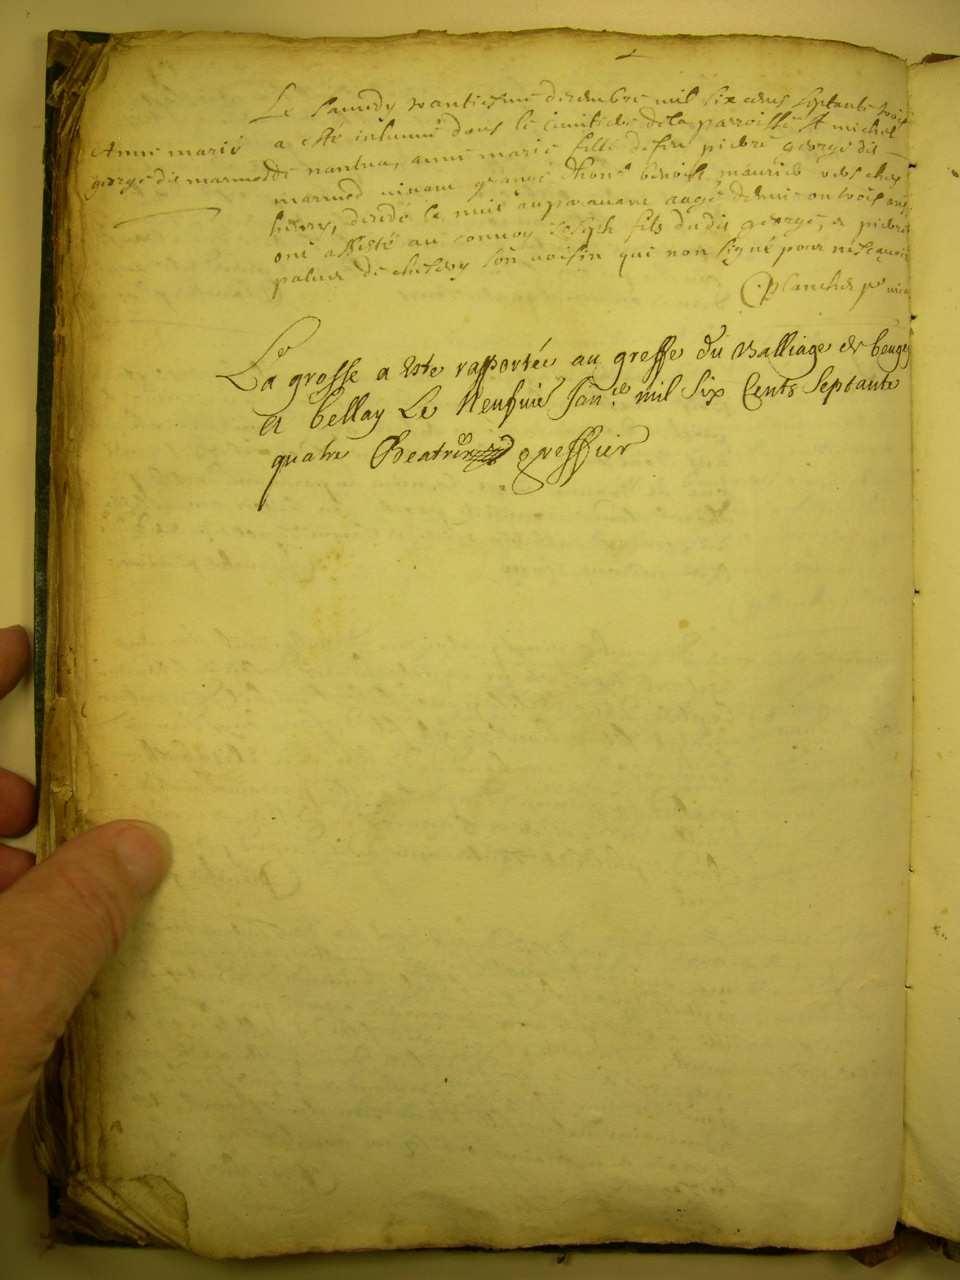 Le samedy vantiesme decembre mil six cens septante trois
Anne marie a esté inhumé dans le cimitiere de la parroisse St michel
george dit marmod de nantua, anne marie fille de feu pierre george dit
marmod vivant grangé d'honé benoist mauriée vers chez
deredé le nuit auparavant aagé denviron trois ans,
ont assisté au convoy Joseph fils dudit george, et pierre
palud de chesery son voisin qui non signé pour ne scavoir
Planchet pr
La grosse a este rapportée au greffe du Balliage de beugey
a bellay Le Neufvie Janr.ce mil six Cents Septante
quatre Beatrix greffier